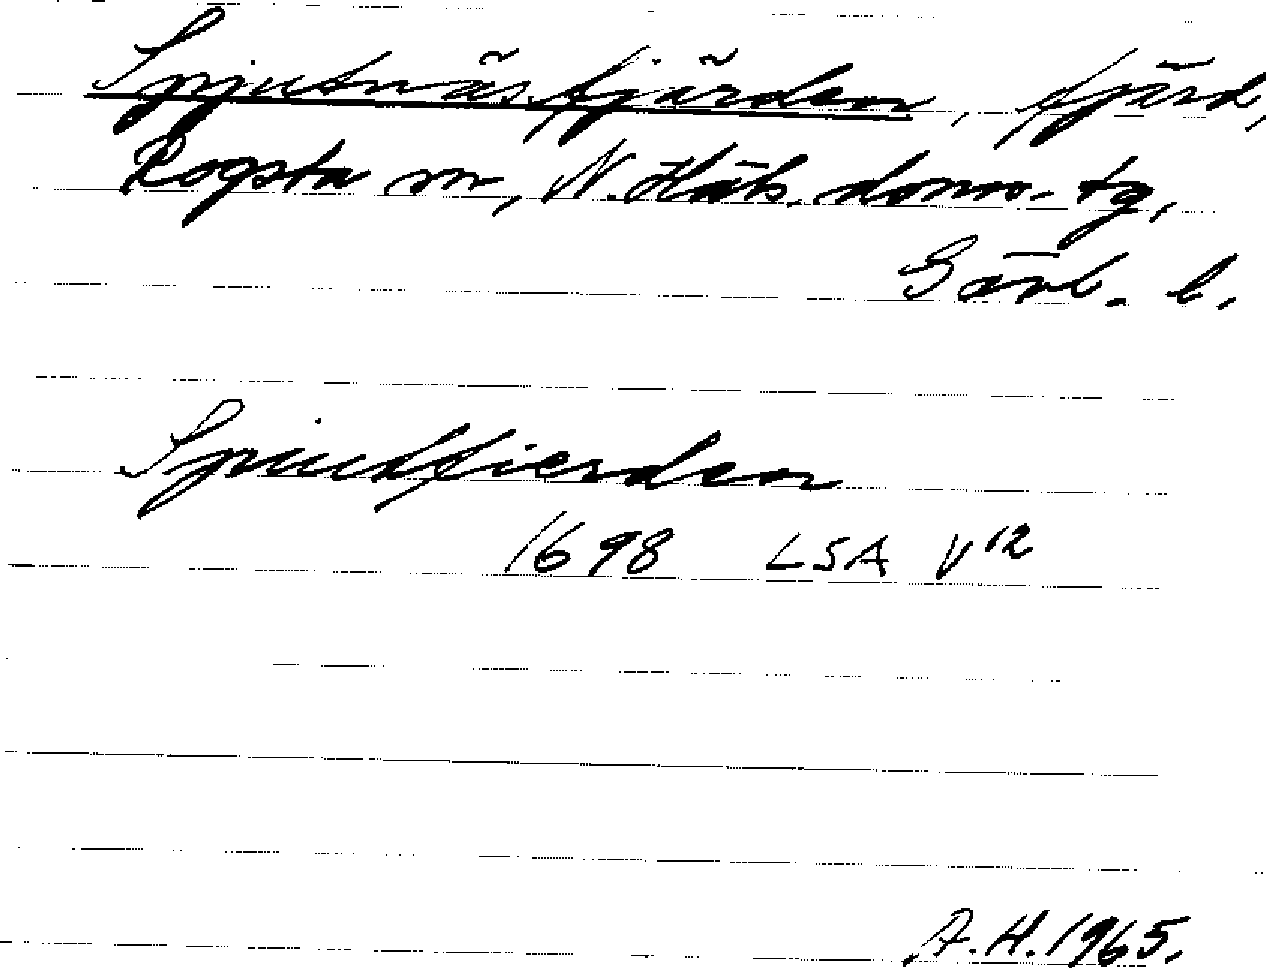 Spjutnäsfjärden, fjärd,
Rogsta sn, N. Häls. doms. tg,
Gävl. l.
Spiutfierden
1698 LSA V12
A.H. 1965.